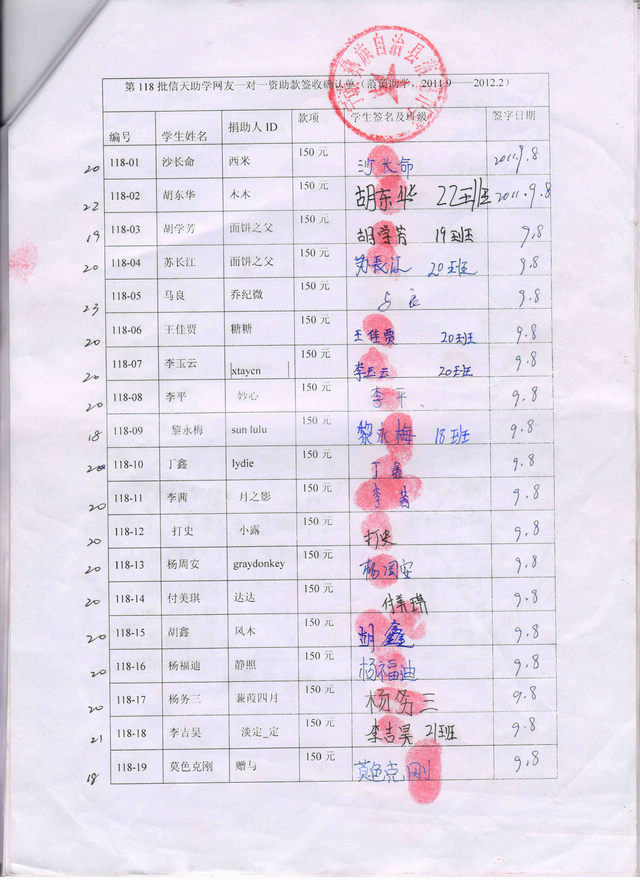 第 118 批信天助学网友一对一资助款签收确认单（浪漠助学，2011.9——2012.2）
编号 学生姓名 捐助人 ID 款项 学生签名及班级 签字日期
20 118-01 沙长命 西米 150 元 沙长命 2011.9.8
22 118-02 胡东华 木木 150 元 胡东华 22班 2011.9.8
19 118-03 胡学芳 面饼之父 150 元 胡学芳 19班 9.8
20 118-04 苏长江 面饼之父 150 元 苏长江 20班 9.8
23 118-05 马良 乔纪微 150 元 马良 9.8
20 118-06 王佳贾 糖糖 150 元 王佳贾 20班 9.8
20 118-07 李玉云 xtaycn 150 元 李玉云 20班 9.8
20 118-08 李平 妙心 150 元 李平 9.8
18 118-09 黎永梅 sun lulu 150 元 黎永梅 18班 9.8
20 118-10 丁鑫 lydie 150 元 丁鑫 9.8
118-11 李茜 月之影 150 元 李茜 9.8
20 118-12 打史 小露 150 元 打史 9.8
20 118-13 杨周安 graydonkey 150 元 杨周安 9.8
20 118-14 付美琪 达达 150 元 付美琪 9.8
20 118-15 胡鑫 风木 150 元 胡鑫 9.8
20 118-16 杨福迪 静照 150 元 杨福迪 9.8
20 118-17 杨务三 蒹葭四月 150 元 杨务三 9.8
21 118-18 李吉昊 淡定_定 150 元 李吉昊 21班 9.8
18 118-19 莫色克刚 赠与 150 元 莫色克刚 9.8